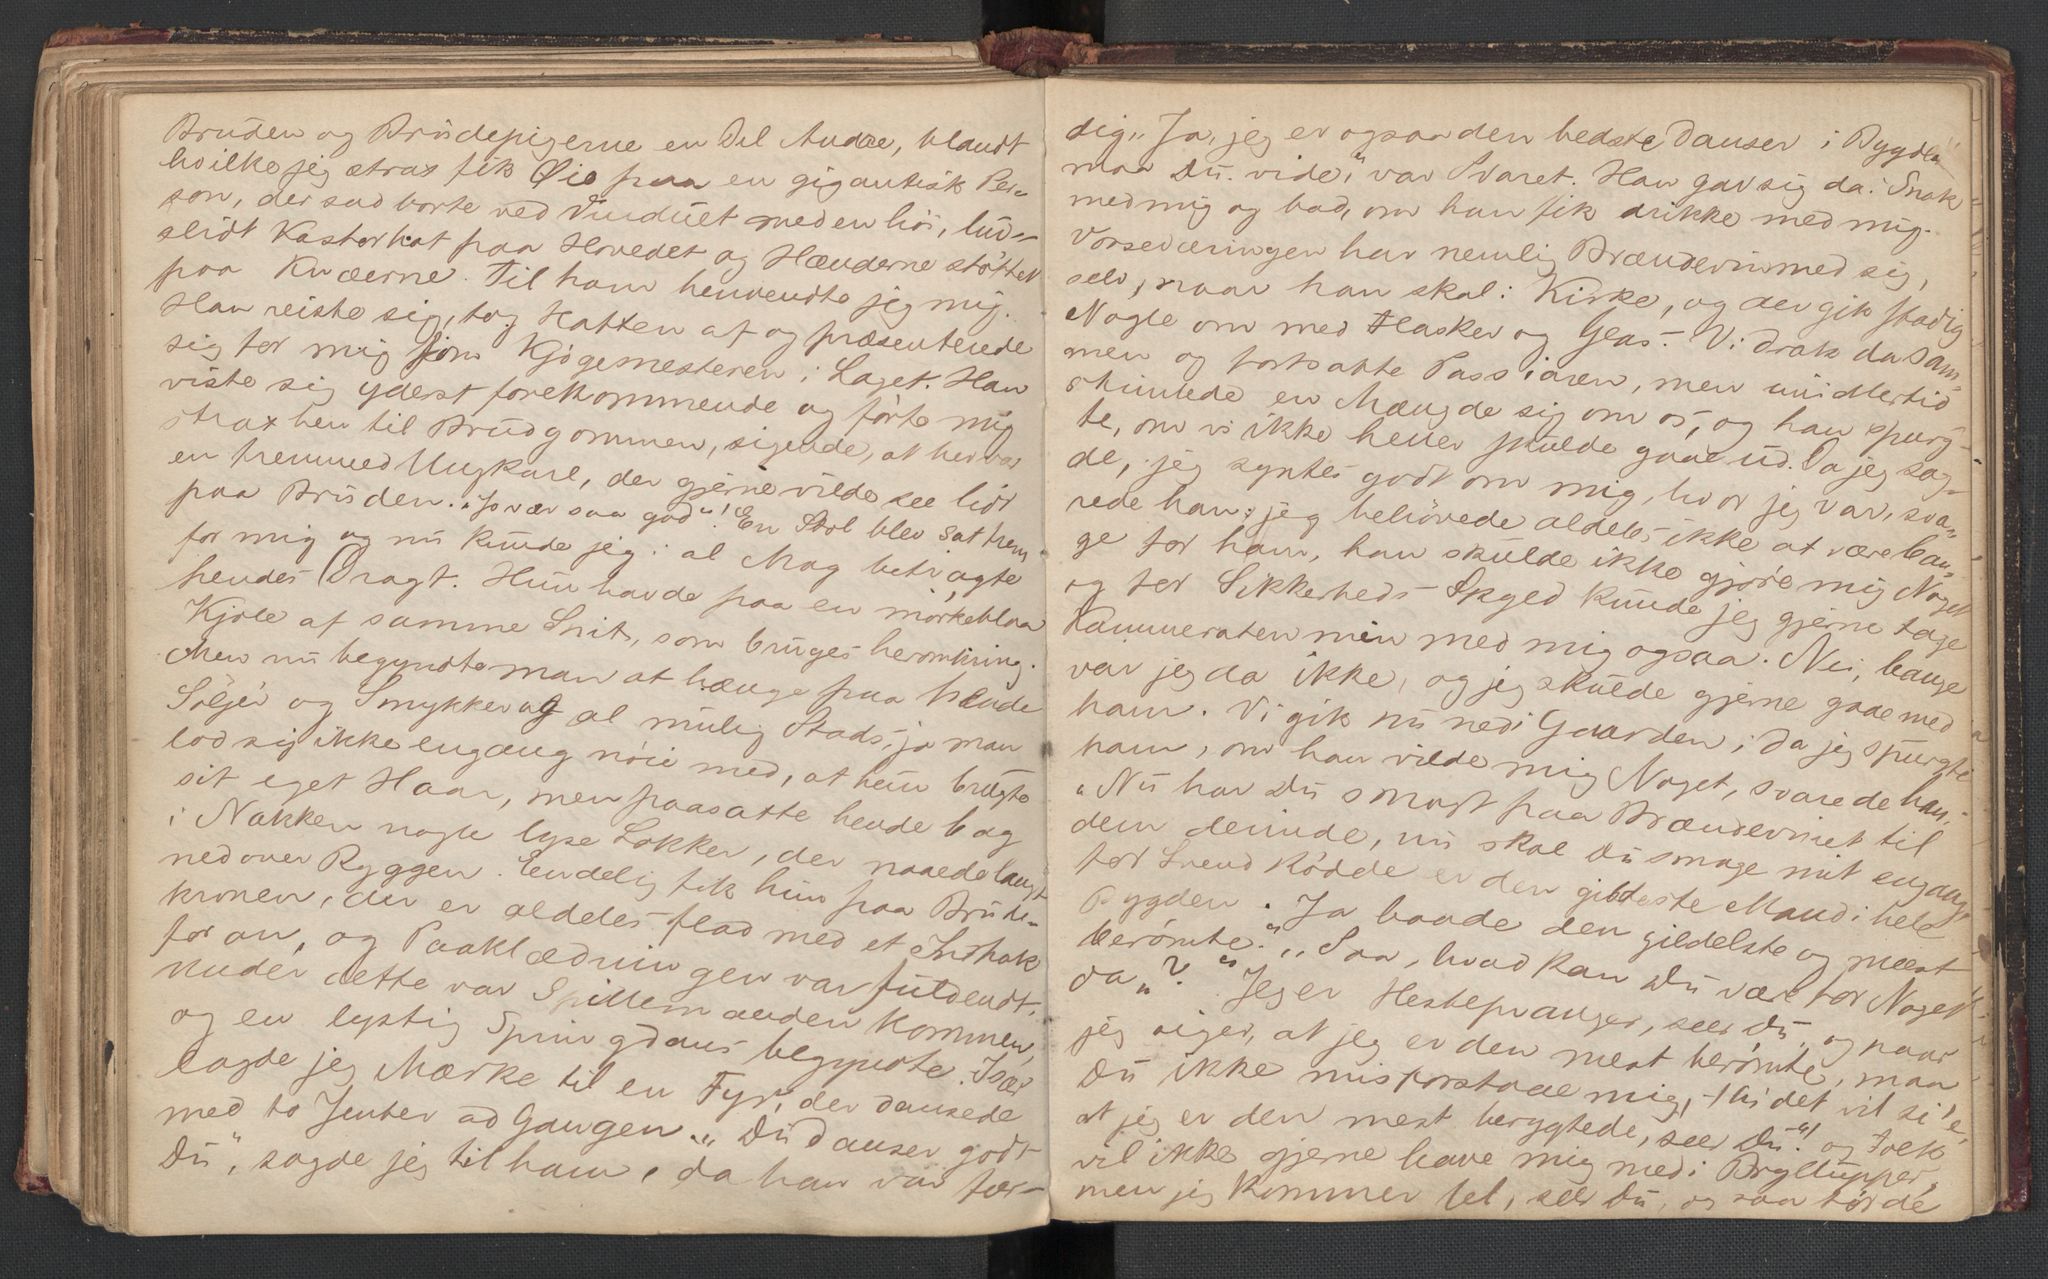 Bruden og Brudepigerne en Del Andre, blandt
hvilke jeg strax fik Øie paa en gigantisk Per-
son, der sad borte ved Vinduet med en høi, lud-
slidt Kastorhat paa Hovedet og Hænderne støttet
paa Knæerne. Til ham henvendte jeg mig.
Han reiste sig, tog Hatten af og præsenterede
sig for mig som Kjøgemesteren i Laget. Han
viste sig yderst forekommende og førte mig
strax hen til Brudgommen, sigende, at her var
en fremmed Ungkarl, der gjerne vilde see lidt
paa Bruden. "Jo vær saa god"! En Stol blev sat frem
for mig og nu kunde jeg i al Mag betragte
hendes Dragt. Hun havde paa en mørkeblaa
Kjole af samme Snit, som bruges heromkring.
Men nu begyndte man at hænge paa hende
Søljer og Smykker og al mulig Stads, ja man
lod sig ikke engang nøie med, at hun brugte
sit eget Haar, men paasatte hende bag
i Nakken nogle lyse Lokker, der naaede langt
nedover Ryggen. Endelig fik hun paa Brude-
kronen, der er aldeles flad med et Indhak
foran, og Paaklædningen var fuldendt.
Under dette var Spillemanden kommen,
og en lystig Springdans begyndte. Især
lagde jeg Mærke til en Fyr, der dansede
med to Jenter ad Gangen. "Du danser godt
Du", sagde jeg til ham, da han var fær-
dig. "Ja, jeg er ogsaa den bedste Danser i Bygden
maa Du vide", var Svaret. Han gav sig da i Snak
med mig og bad, om han fik drikke med mig.
Vorsedæringen har nemlig Brændeviin med sig,
selv, naar han skal i Kirke, og der gik stadig
Nogle om med Flasker og Glas. Vi drak da sam-
men og fortsatte Passiaren, men imidlertid
stimlede en Mængde sig om os, og han spurg-
te, om vi ikke heller skulde gaae ud. Da jeg sag-
de, jeg syntes godt om mig, hvor jeg var, sva-
rede han: jeg behøvede aldeles ikke at være ban-
ge for ham, han skulde ikke gjøre mig Noget
og for Sikkerheds Skyld kunde jeg gjerne tage
Kammeraten min med mig ogsaa. Nei, bange
var jeg da ikke, og jeg skulde gjerne gaae med
ham. Vi gik nu ned i Gaarden; da jeg spurgte
ham, om han vilde mig Noget, svarede han:
"Nu har Du smagt paa Brændevinet til
dem derinde, nu skal Du smage mit engang,
for Svend Rødde er den gildeste Mand i hele
Bygden. Ja baade den gildelste og mest
berømte." "Saa, hvad kan Du være for Noget
da"? "Jeg er Hestepranger, seer Du, og naar
jeg siger, at jeg er den mest berømte, maa
Du ikke misforstaae mig, thi det vil si'e,
at jeg er den mest berygtede, seer Du" og Folk
vil ikke gjerne have mig med i Bryllupper,
men jeg kommer til, seer Du, og saa tør de